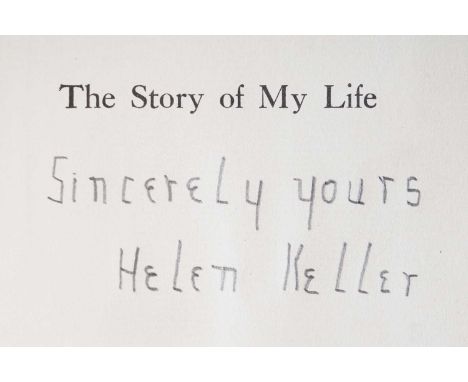 The Story of My Life
Sincerely yours
Helen Keller